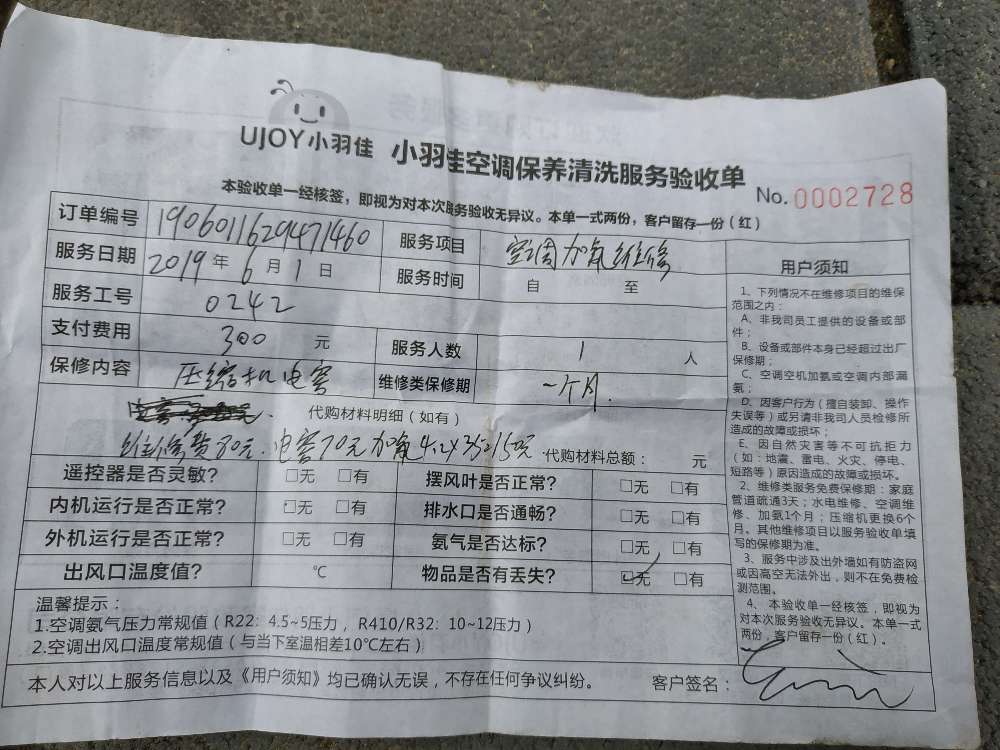 UJOY小羽佳 小羽佳空调保养清洗服务验收单
No. 0002728
本验收单一经核签，即视为对本次服务验收无异议。本单一式两份，客户留存一份（红）
订单编号 1906011629471460 服务项目 空调加氟维修
服务日期 2019年6月1日 服务时间 自 至
服务工号 0242
支付费用 300 元 服务人数 1 人
保修内容 压缩机电容 维修类保修期 一个月
代购材料明细（如有）
维修费80元.电容70元 代购材料总额： 元
遥控器是否灵敏？ □无 □有 摆风叶是否正常？ □无 □有
内机运行是否正常？ □无 □有 排水口是否通畅？ □无 □有
外机运行是否正常？ □无 □有 氨气是否达标？ □无 □有
出风口温度值？ ℃ 物品是否有丢失？ ☑无 □有
温馨提示：
1.空调氨气压力常规值（R22：4.5~5压力， R410/R32：10~12压力）
2.空调出风口温度常规值（与当下室温相差10℃左右）
本人对以上服务信息以及《用户须知》均已确认无误，不存在任何争议纠纷。 客户签名：
用户须知
1、下列情况不在维修项目的维保
范围之内：
A、非我司员工提供的设备或部
件；
B、设备或部件本身已经超过出厂
保修期；
C、空调空机加氨或空调内部漏
氨；
D、因客户行为（擅自装卸、操作
失误等）或另请非我司人员检修所
造成的故障或损坏；
E、因自然灾害等不可抗拒力
（如：地震、雷电、火灾、停电、
短路等）原因造成的故障或损坏。
2、维修类服务免费保修期：家庭
管道疏通3天；水电维修、空调维
修、加氨1个月；压缩机更换6个
月。其他维修项目以服务验收单填
写的保修期为准。
3、服务中涉及出外墙如有防盗网
或因高空无法外出，则不在免费检
测范围。
4、本验收单一经核签，即视为
对本次服务验收无异议。本单一式
两份，客户留存一份（红）。